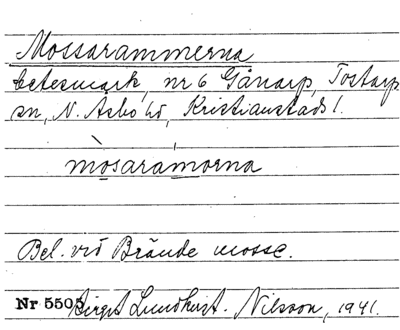 Mossarammerna
betesmark, nr 6 Gånarp, Tostarp
sn, N. Asbo hd, Kristianstads l.
mòsaramorna
Bel. vid Brände mosse.
Nr 5505 Birgit Lundkvist-Nilsson, 1941.